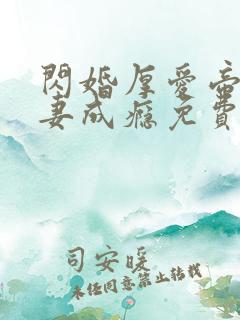 閃婚厚愛
妻成癮免費
司安暖
未經同意禁止轉載